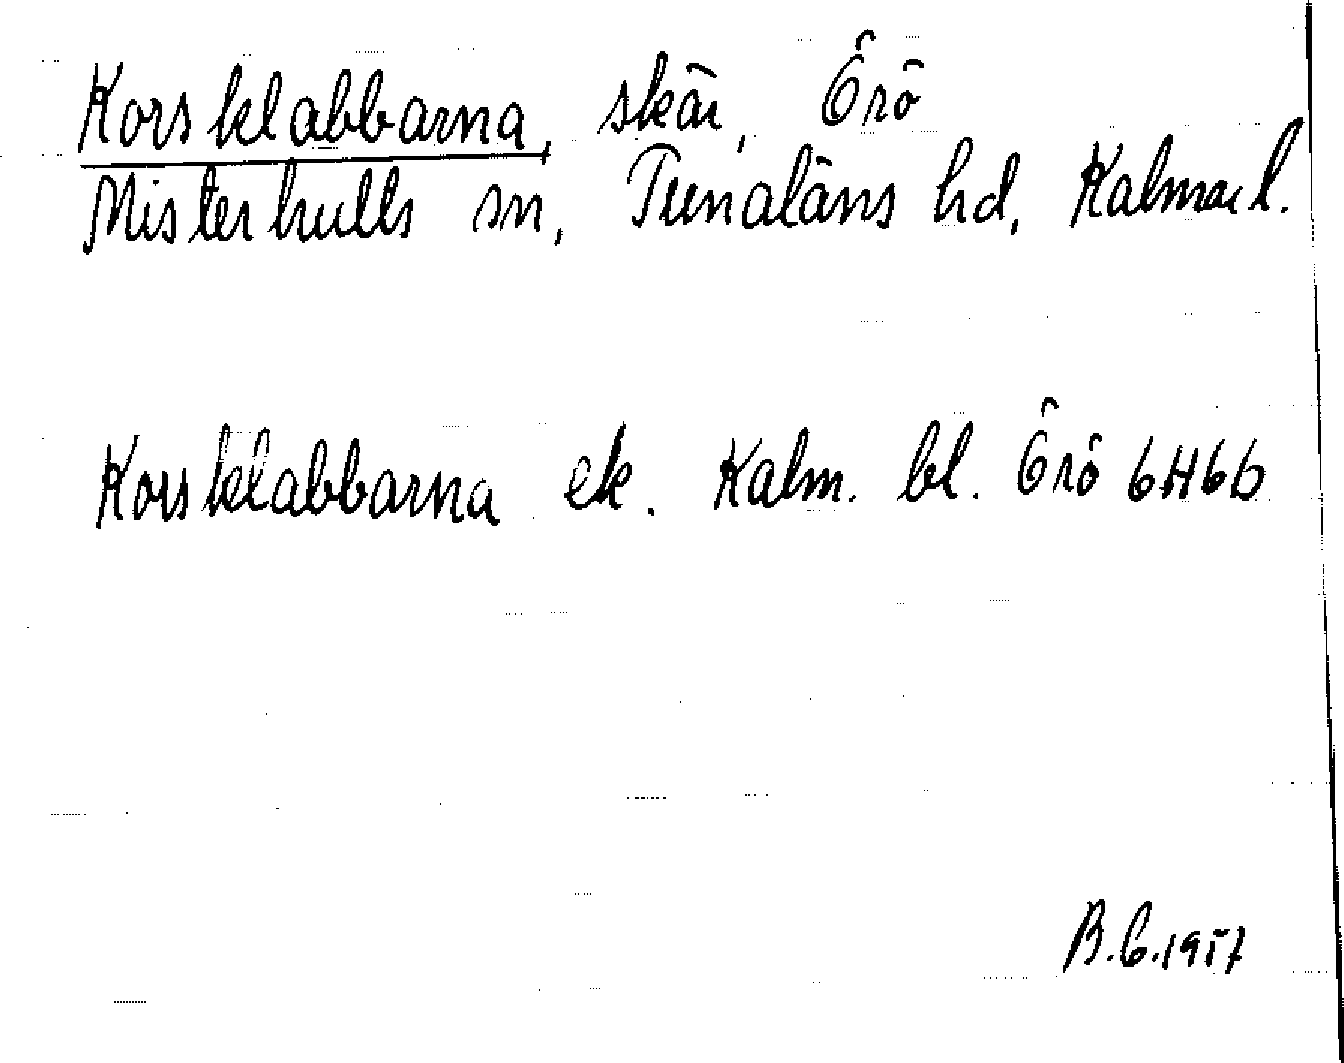 Korsklabbarna, skär, Örö
Misterhults sn, Tunaläns hd, Kalmar l.
Korsklabbarna ek. Kalm. bl. Örö 6H6b
B.C.1957